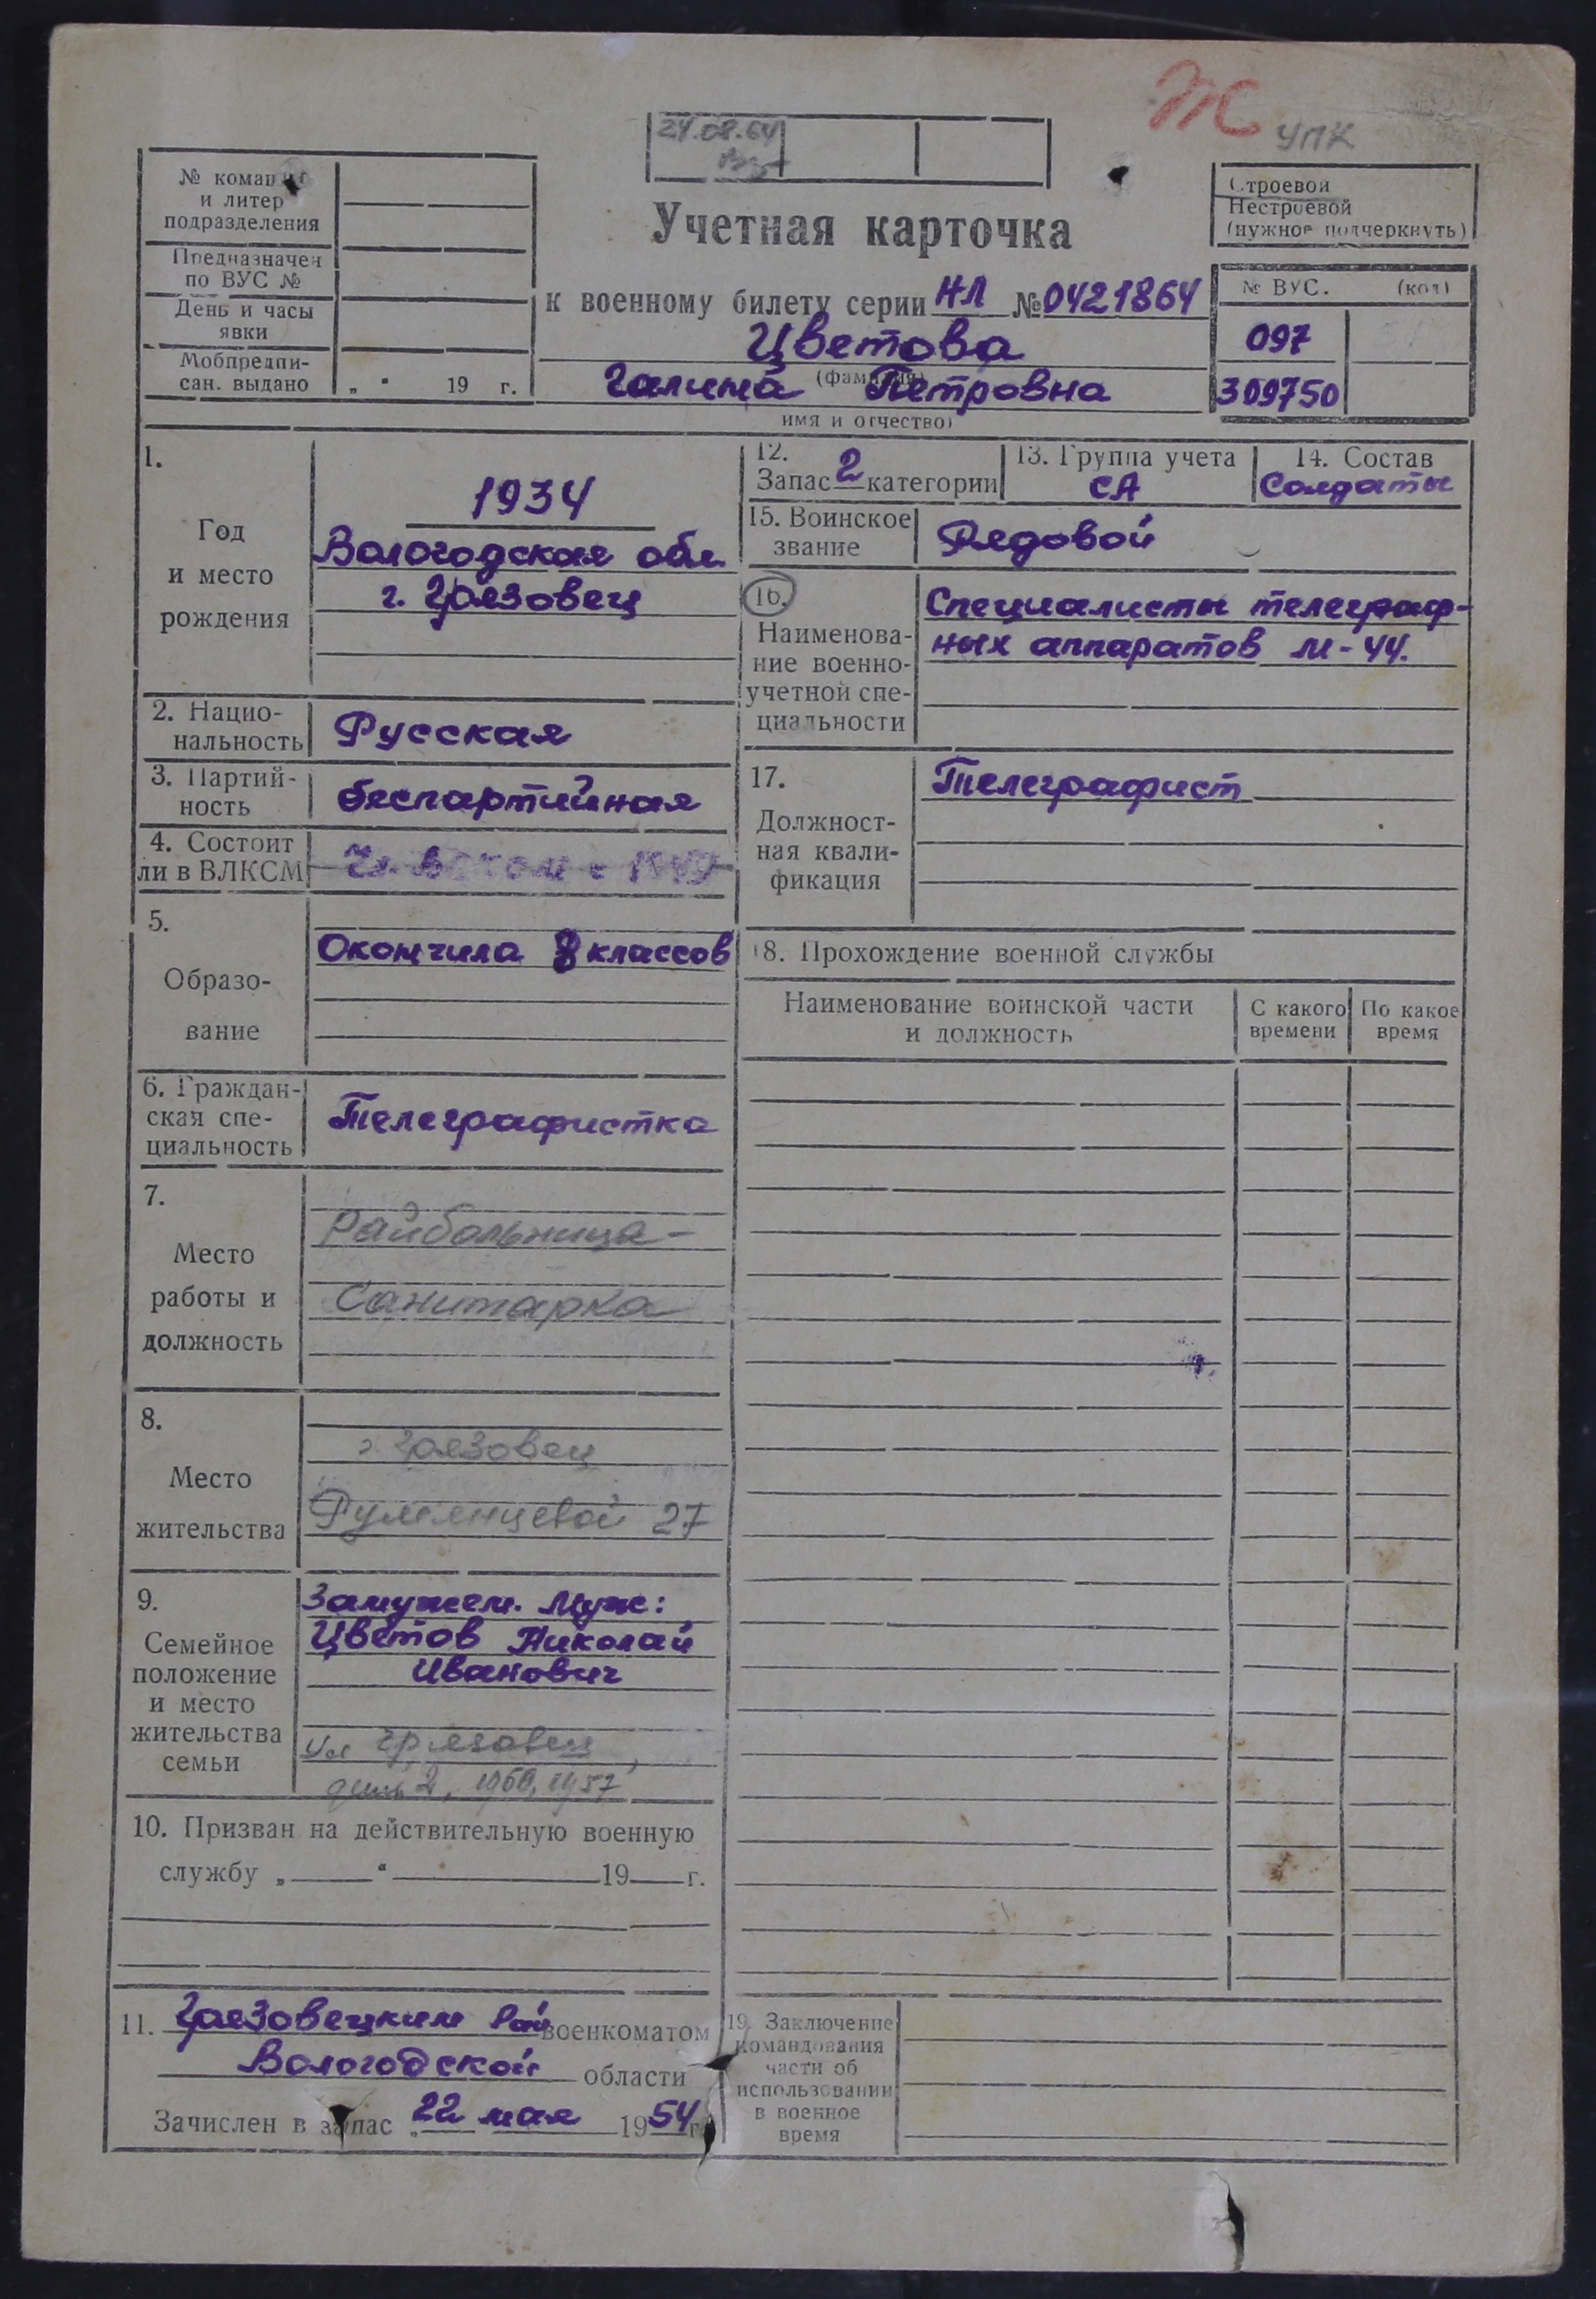 Ж УПК
24.08.64
№ команды
и литер
подразделения
Предназначен
по ВУС №
День и часы
явки
Мобпредпи-
сан. выдано „ “ 19 г.
Учетная карточка
к военному билету серии НЛ № 0421864
Цветова
(фамилия)
Галина Петровна
имя и отчество)
Строевой
Нестроевой
(нужное подчеркнуть)
№ ВУС. (код)
097
309750
1.
Год
и место
рождения
1934
Вологодская обл.
г. Грязовец
2. Нацио-
нальность
Русская
3. Партий-
ность
беспартийная
4. Состоит
ли в ВЛКСМ
5.
Образо-
вание
Окончила 8 классов
6. Граждан-
ская спе-
циальность
Телеграфистка
7.
Место
работы и
должность
Райбольница-
Санитарка
8.
Место
жительства
г. Грязовец
Румянцевой 27
9.
Семейное
положение
и место
жительства
семьи
Замужем. Муж:
Цветов Николай
Иванович
Грязовец
2, 1960, 1957
10. Призван на действительную военную
службу „ “ 19 г.
11. Грязовецким Рай военкоматом
Вологодской области
Зачислен в запас „22 мая 1954 г.
12.
Запас 2 категории
13. Группа учета
СА
14. Состав
Солдаты
15. Воинское
звание
Рядовой
16.
Наименова-
ние военно-
учетной спе-
циальности
Специалисты телеграф-
ных аппаратов М-44.
17.
Должност-
ная квали-
фикация
Телеграфист
18. Прохождение военной службы
Наименование воинской части
и должность
С какого
времени
По какое
время
19. Заключение
командования
части об
использовании
в военное
время